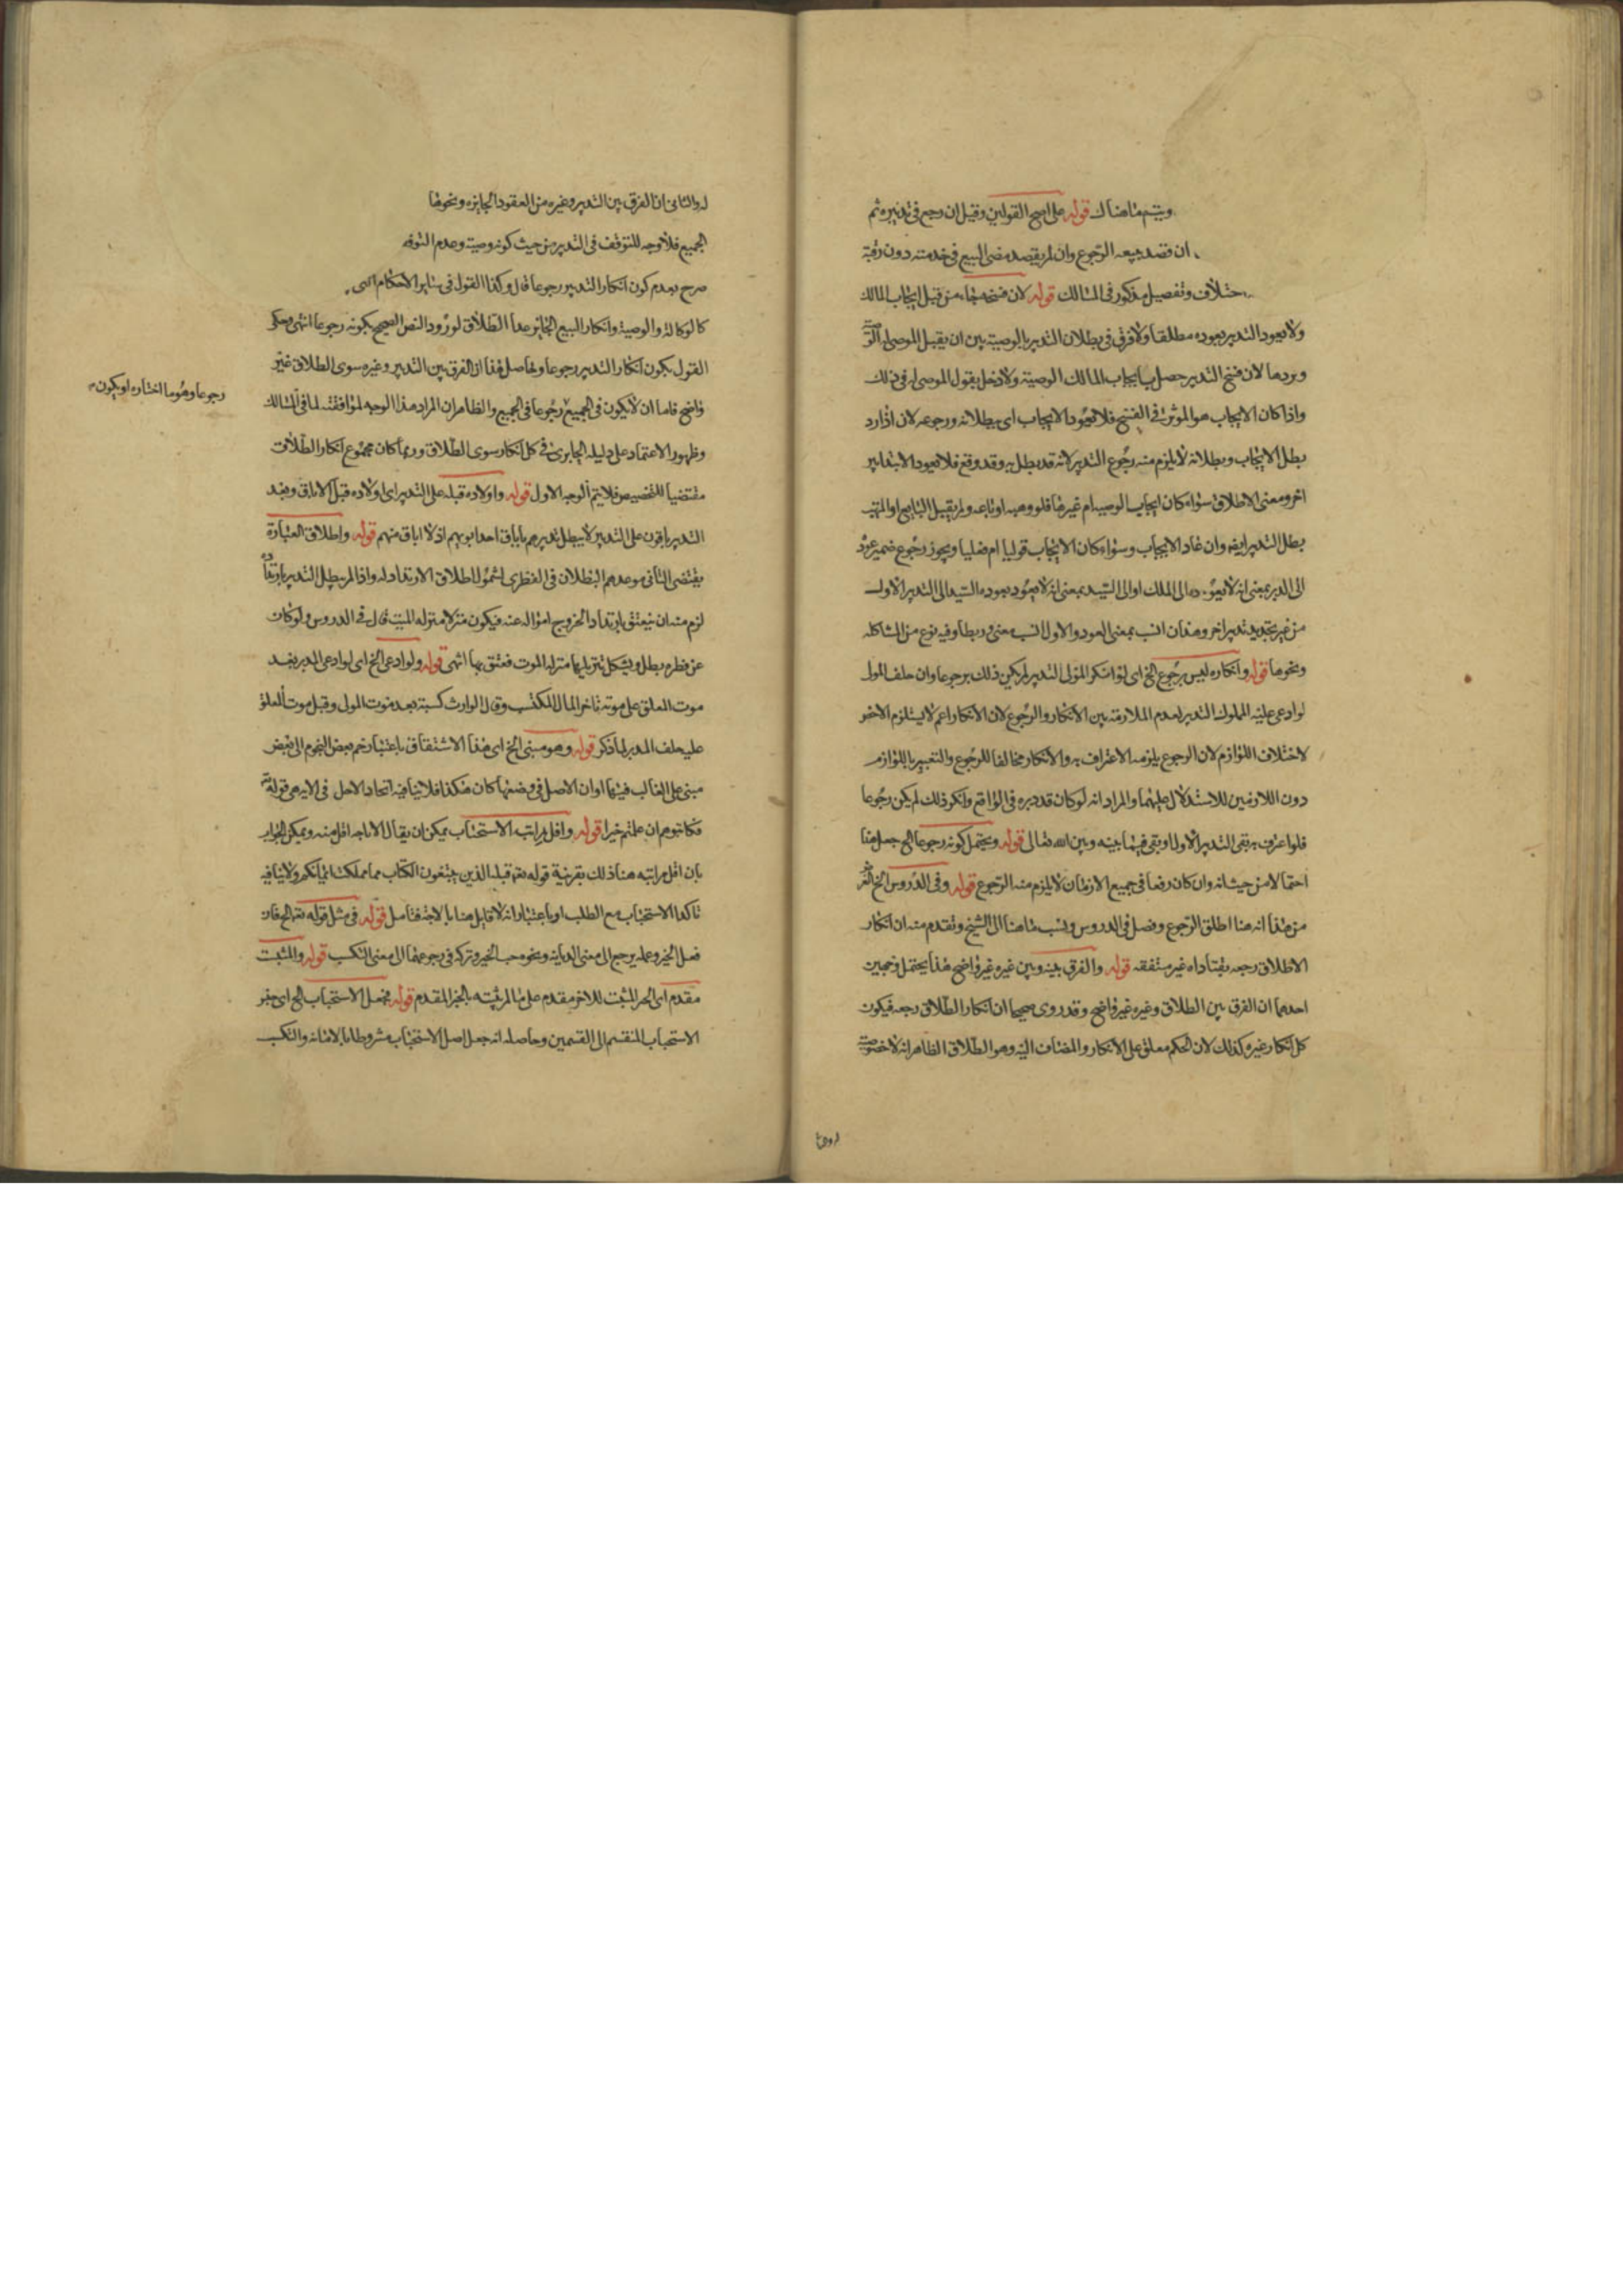 ويتم ما هناك قوله على اصح القولين وقيل ان رجع في تدبيره ثم
ان قصد ببيعه الرجوع وان لم يقصد مضى البيع في خدمته دون رقبته
وتفصيل مذكور في المسالك قوله لان فسخه جاء من قبل ايجاب المالك
ولا يعود التدبير بعوده مطلقا ولا فرق في بطلان التدبير بالوصية بين ان يقبل الموصى له الوصية
ويردها لان فسخ التدبير حصل بايجاب المالك الوصية ولا دخل بقول الموصى له في ذلك
واذا كان الايجاب هو الموثر في الفسخ فلا يعود الايجاب اى ببطلانه ورجوعه لان اذا رد
بطل الايجاب وبطلانه لا يلزم منه رجوع التدبير لانه قد بطل به وقد وقع فلا يعود الا بتدبير
اخر ومعنى الاطلاق سواء كان ايجاب الوصية ام غيرها فلو وهبه او باعه ولم يقبل البايع او المتهب
بطل التدبير ايضا وان عاد الايجاب وسواء كان الايجاب قوليا ام فعليا ويجوز رجوع ضمير عوده
الى المدبر بمعنى انه لا يعود الى الملك او الى السيد بمعنى انه لا يعود بعوده السيد الى التدبير الاول
من غير تجديد تدبير اخر وهذان انسب بمعنى العود والاول انسب معنى وربطا وفيه نوع من المشاكلة
ونحوها قوله وانكاره ليس برجوع الخ اى لو انكر المولى التدبير لم يكن ذلك برجوعا وان حلف المولى
لو ادعى عليه المملوك التدبير لعدم الملازمة بين الانكار والرجوع لان الانكار اعم لا يستلزم الاخص
لاختلاف اللوازم لان الرجوع يلزمه الاعتراف به والانكار مخالفا للرجوع والتعبير باللوازم
دون اللازمين للاستدلال عليهما والمراد انه لو كان قد دبره في الواقع وانكر ذلك لم يكن رجوعا
فلو اعترف به بقى التدبير الاول او بقى فيما بينه وبين الله تعالى قوله ويحتمل كونه رجوعا الخ جعل هنا
احتمالا من حيث انه وان كان رفعا في جميع الازمان لا يلزم منه الرجوع قوله وفى الدروس الخ الغرض
من هذا انه هنا اطلق الرجوع وفصل في الدروس ونسب ما هنا الى الشيخ وتقدم منه ان انكار
الاطلاق رجعه غير متفقه قوله والفرق بينه وبين غيره غير واضح هذا يحتمل وجهين
احدهما ان الفرق بين الطلاق وغيره غير واضح وقد روى صحيحا ان انكار الطلاق رجعه فيكون
كل انكار غيره كذلك لان الحكم معلق على الانكار والمضاف اليه وهو الطلاق الظاهر انه لا خصوصية
له والثانى ان الفرق بين التدبير وغيره من العقود الجايزه ونحوها
الجميع فلا وجه للتوقف في التدبير من حيث كونه وصية وعدم التوقف
صرح بعدم كون انكار التدبير رجوعا قال وكذا القول في ساير الاحكام انتهى
كالوكالة والوصية وانكار البيع الجايز عدا الطلاق لورود النص الصحيح بكونه رجوعا انتهى وحكى
القول بكون انكار التدبير رجوعا وحاصل هذا ان الفرق بين التدبير وغيره سوى الطلاق غير
واضح فاما ان لا يكون في الجميع رجوعا في الجميع والظاهر ان المراد هذا الوجه لموافقته لما في المسالك
رجوعا وهو ما اختاره او يكون
وظهور الاعتماد على دليله الجارى في كل انكار سوى الطلاق وربما كان مجموع انكار الطلاق
مقتضيا للتخصيص فلا يتم الوجه الاول قوله واولاده قبله على التدبير اى اولاده قبل الاباق وبعد
التدبير باقون على التدبير لا يبطل تدبيرهم باباق احد ابويهم اذ لا اباق منهم قوله واطلاق العبارة
يقتضى الثانى وعدم البطلان في الفطرى لشمول اطلاق الارتداد له واذا لم يبطل التدبير بارتداده
لزم منه ان ينعتق بارتداد لخروج امواله عنه فيكون منزلا منزله الميت قال في الدروس ولو كان
عن فطره بطل ويشكل تنزيلها منزلة الموت فعتق بها انتهى قوله ولو ادعى الخ اى لو ادعى المدبر بعد
موت المعلق على موته تاخر المال المكتسب وقال الوارث كسبته بعد موت المولى وقبل موت المعلق
عليه حلف المدبر لما ذكر قوله وهو مبنى الخ اى هذا الاشتقاق باعتبار ضم بعض النجوم الى بعض
مبنى على الغالب فيها او ان الاصل في وضعها كان هكذا فلا ينافيه اتحاد الاجل في الايه هى قوله تعالى
فكاتبوهم ان علمتم خيرا قوله واقل مراتبه الاستحباب يمكن ان يقال الاباحه اقل منه ويمكن الجواب
بان اقل مراتبه هنا ذلك بقرينة قوله تعالى قبله الذين يبتغون الكتاب مما ملكت ايمانكم ولا ينافيه
تاكد الاستحباب مع الطلب او باعتبار انه لا قايل هنا بالاباحة فتامل قوله في مثل قوله تعالى الخ فان
فعل الخير وعمله يرجع الى معنى الديانة ونحوه حب الخير وتركه في رجوعهما الى معنى التكسب قوله والمثبت
مقدم اى الخبر المثبت للاخر مقدم على ما لم يثبته بالخبر المقدم قوله فجعل الاستحباب الخ اى خبر
الاستحباب المنقسم الى القسمين وحاصله انه جعل اصل الاستحباب مشروطا بالامانة والتكسب